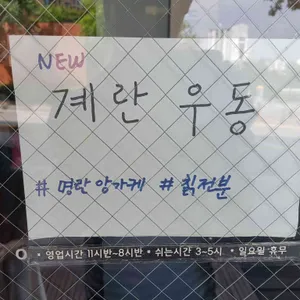 NEW
계란 우동
# 명란 앙가케 # 칡전분
• 영업시간 11시반~8시반 • 쉬는시간 3~5시 • 일요일 휴무